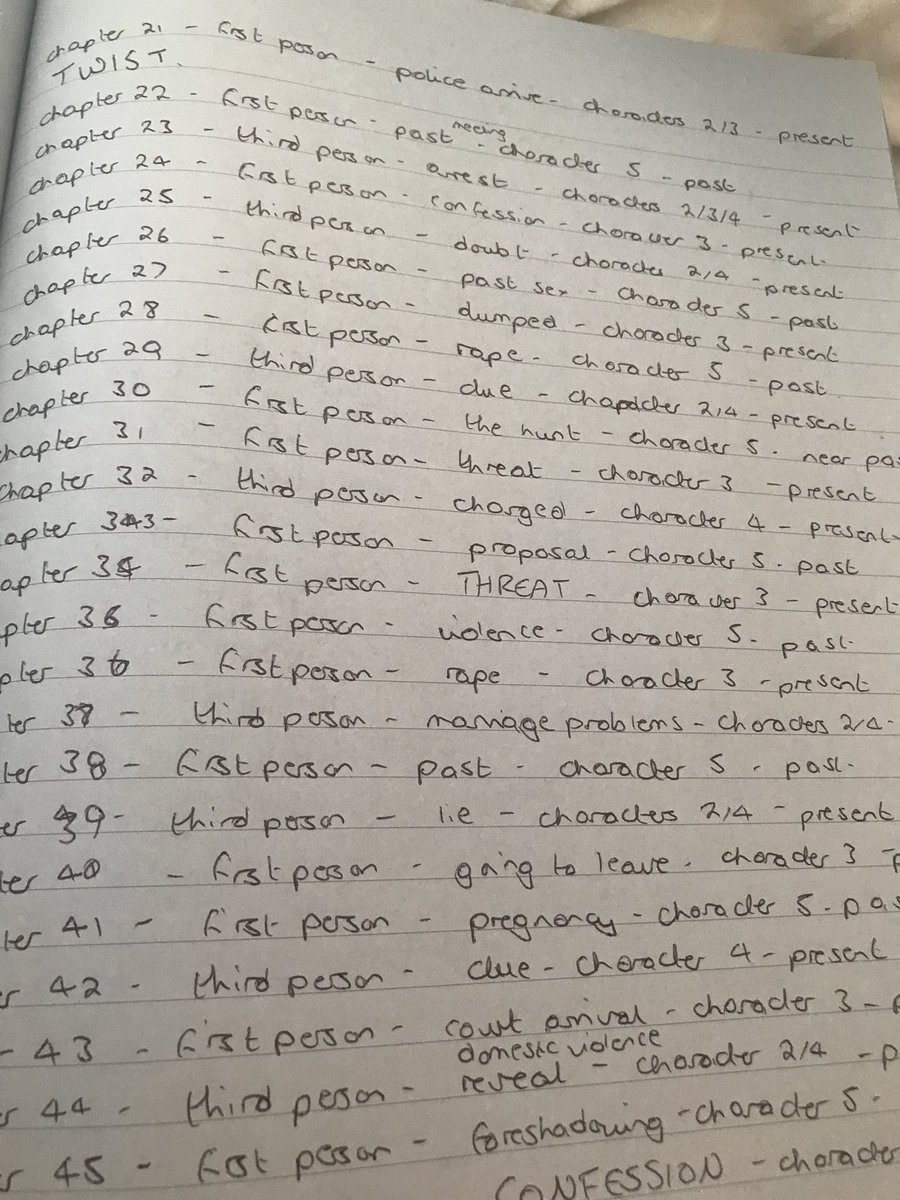 chapter 21 - first person - police arrive - characters 2/3 - present
TWIST.
chapter 22 - first person - past meeting - character 5 - past
chapter 23 - third person - arrest - characters 2/3/4 - present
chapter 24 - first person - confession - character 3 - present
chapter 25 - third person - doubt - character 2/4 - present
chapter 26 - first person - past sex - character 5 - past
chapter 27 - first person - dumped - character 3 - present
chapter 28 - first person - rape - character 5 - past
chapter 29 - third person - clue - chapdcter 2/4 - present
chapter 30 - first person - the hunt - character 5. near pas
chapter 31 - first person - threat - character 3 - present
chapter 32 - third person - charged - character 4 - present
apter 33 - first person - proposal - character 5. past
apter 34 - first person - THREAT - character 3 - present
pter 36 - first person - violence - character 5. past
pter 36 - first person - rape - character 3 - present
ter 37 - third person - marriage problems - characters 2/4 -
ter 38 - first person - past - character 5. past
er 39 - third person - lie - characters 2/4 - present
ter 40 - first person - going to leave. character 3 - p
ter 41 - first person - pregnancy - character 5. pas
r 42 - third person - clue - character 4 - present
- 43 - first person - court arrival - character 3 - p
r 44 - third person - domestic violence reveal - character 2/4 - p
r 45 - first person - foreshadowing - character 5.
CONFESSION - character